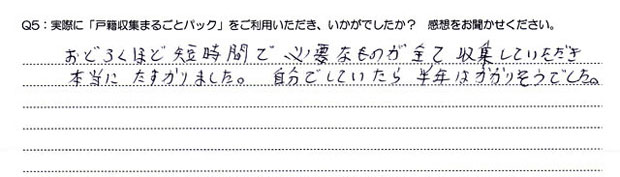 Q5：実際に「戸籍収集まるごとパック」をご利用いただき、いかがでしたか？ 感想をお聞かせください。
おどろくほど短時間で必要なものが全て収集していただき
本当にたすかりました。自分でしていたら半年はかかりそうでした。